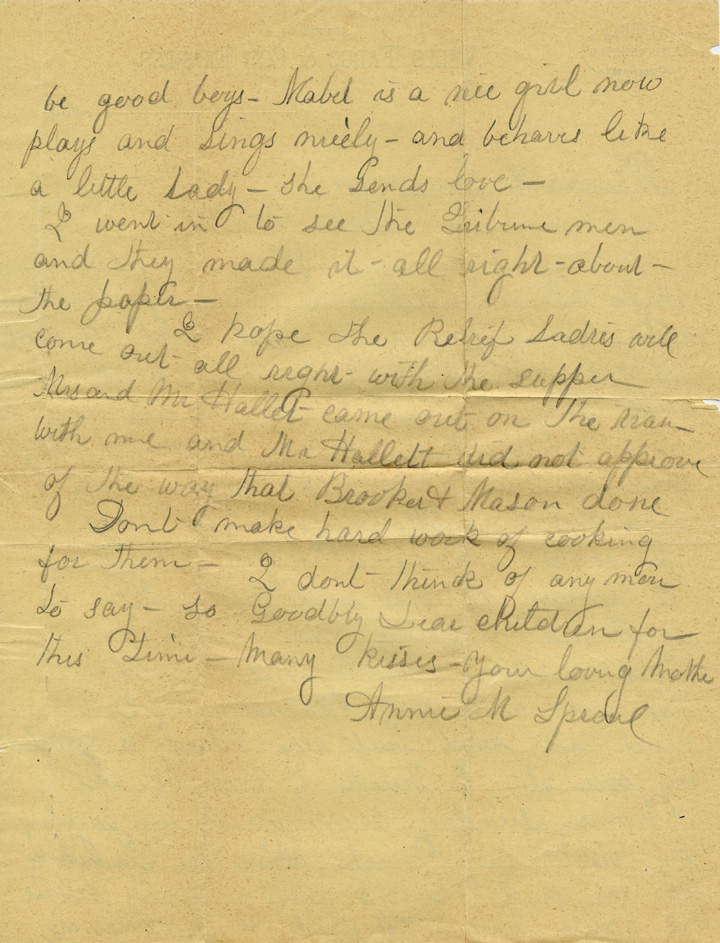 be good boys - Mabel is a nice girl now
plays and sings nicely - and behaves like
a little Lady - she sends love -
I went in to see the Tribune men
and they made it - all right - about -
the paper -
I hope the Relief Ladies will
come out - all right - with the supper
Mrs and Mr Hallet came out on the train
with me and Mr Hallett did not approve
of the way that Brooker & Mason done
Dont make hard work of cooking
for them - I dont think of any more
to say - so Goodbby Dear children for
this time - Many kisses - your loving Mothe
Annie M Sproul